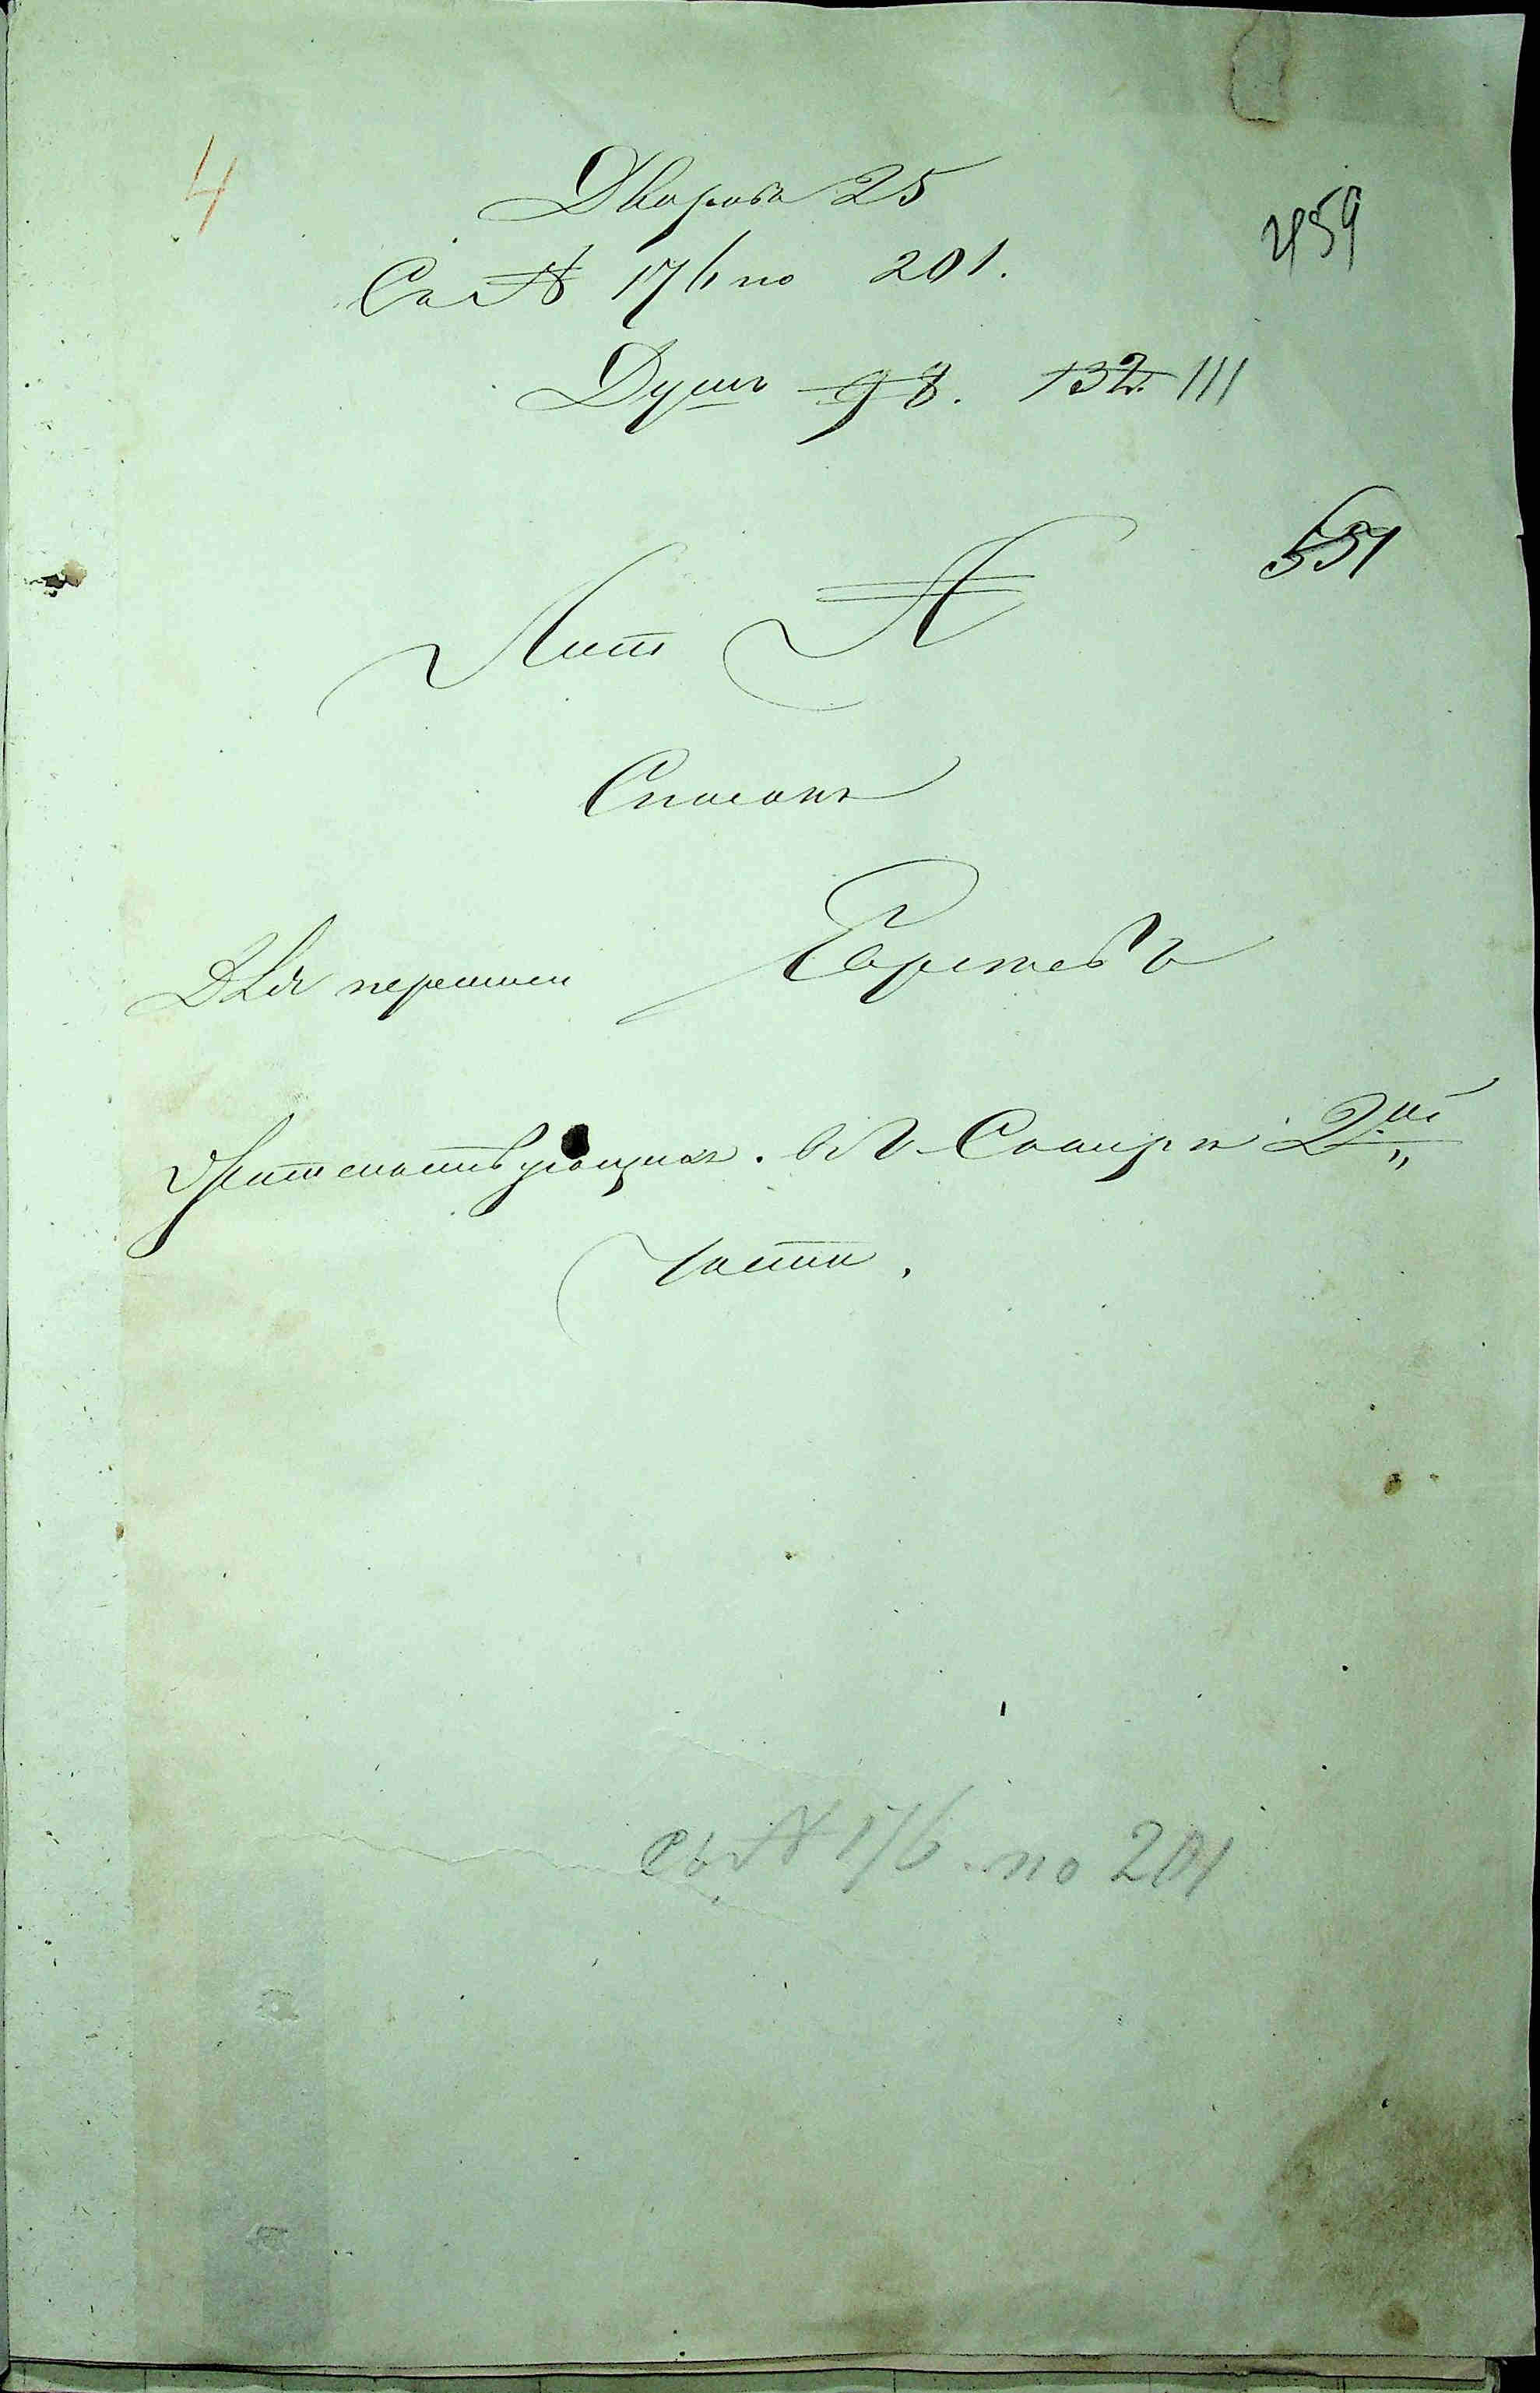 4
Дворовъ 25
459
Съ № 176 по 201.
Душъ 98. 132. 111
Лит А
Списокъ
Для переписи Евреевъ
Жительствующихъ. въ г. Сквирѣ 2ой
части.
съ № 176. по 201